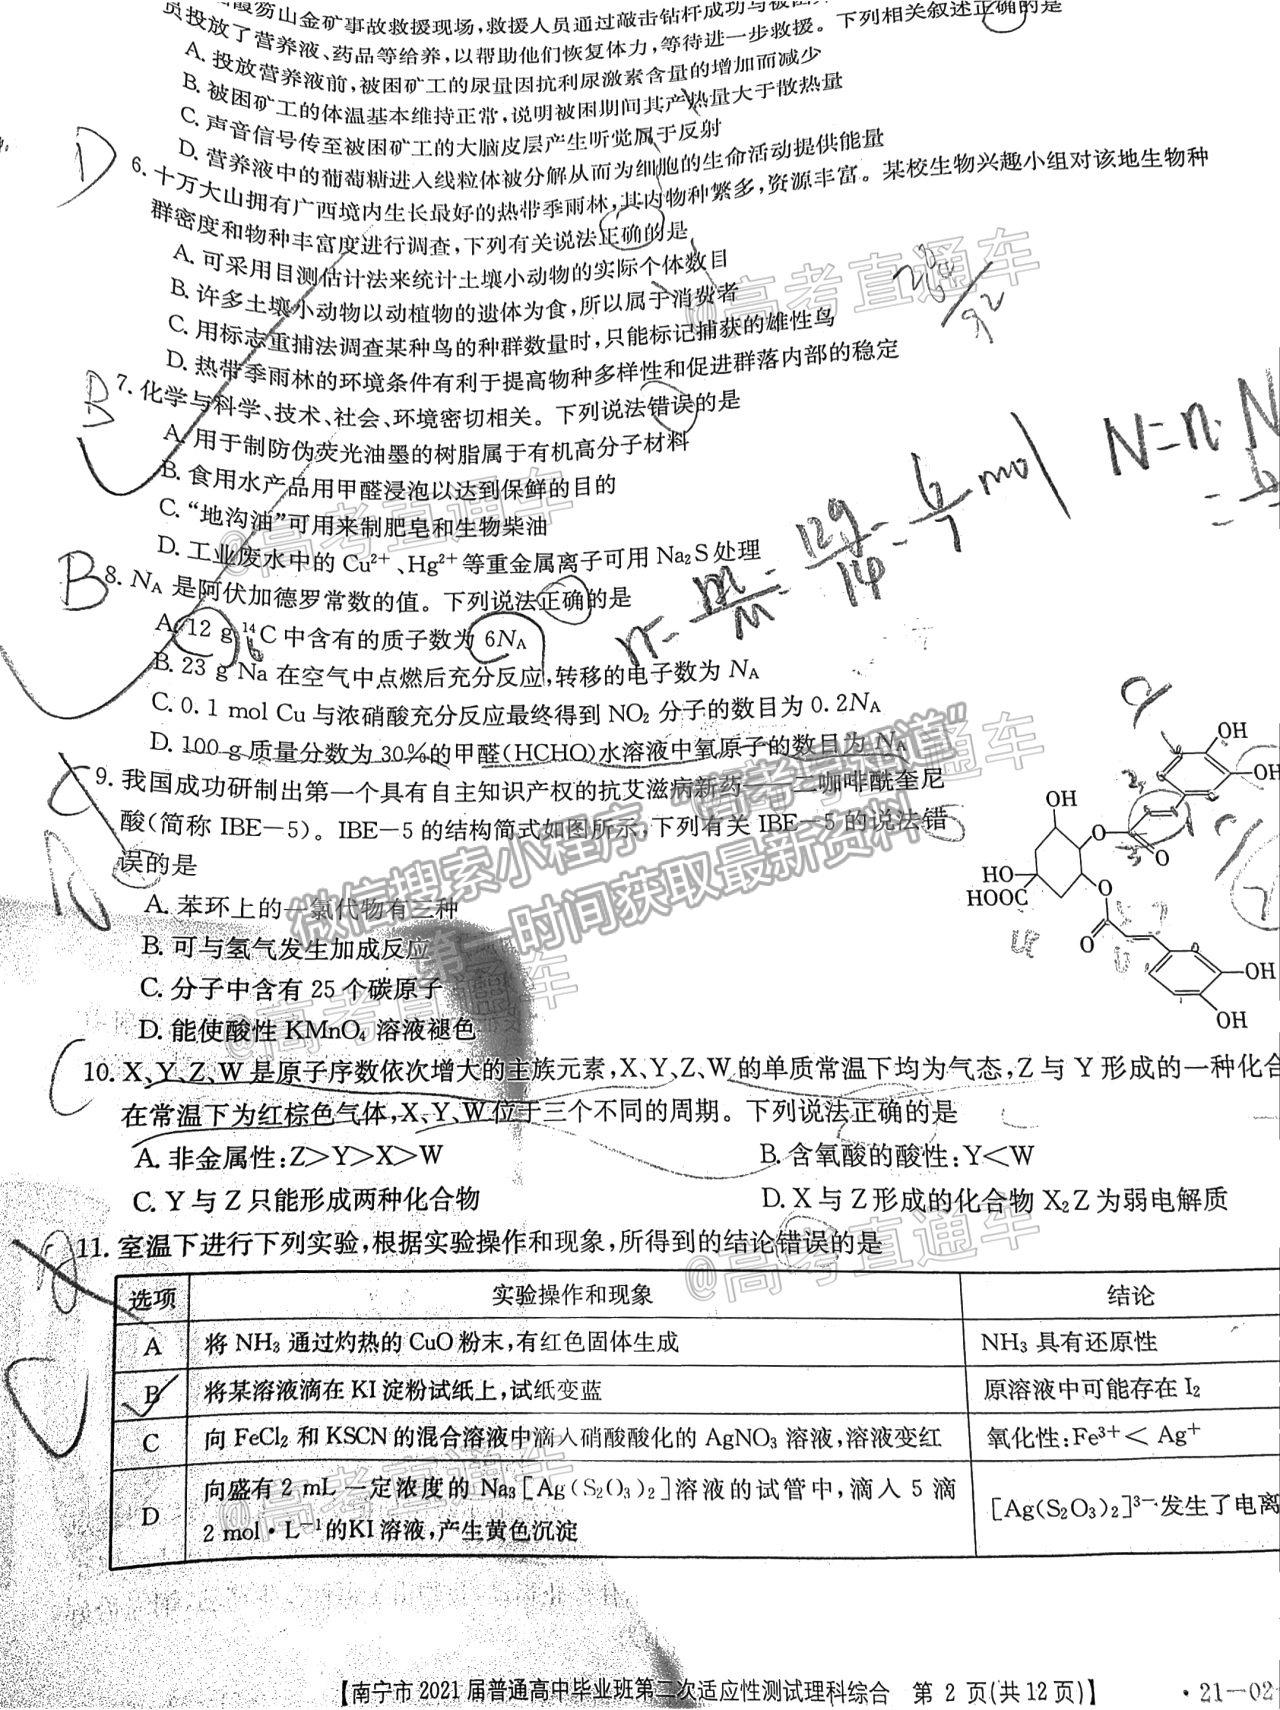 霞笏山金矿事故救援现场,救援人员通过敲击钻杆成功与被困
员投放了营养液、药品等给养,以帮助他们恢复体力,等待进一步救援。下列相关叙述正确的是
A. 投放营养液前,被困矿工的尿量因抗利尿激素含量的增加而减少
B. 被困矿工的体温基本维持正常,说明被困期间其产热量大于散热量
C. 声音信号传至被困矿工的大脑皮层产生听觉属于反射
D. 营养液中的葡萄糖进入线粒体被分解从而为细胞的生命活动提供能量
6. 十万大山拥有广西境内生长最好的热带季雨林,其内物种繁多,资源丰富。某校生物兴趣小组对该地生物种
群密度和物种丰富度进行调查,下列有关说法正确的是
A. 可采用目测估计法来统计土壤小动物的实际个体数目
B. 许多土壤小动物以动植物的遗体为食,所以属于消费者
C. 用标志重捕法调查某种鸟的种群数量时,只能标记捕获的雄性鸟
D. 热带季雨林的环境条件有利于提高物种多样性和促进群落内部的稳定
7. 化学与科学、技术、社会、环境密切相关。下列说法错误的是
A. 用于制防伪荧光油墨的树脂属于有机高分子材料
B. 食用水产品用甲醛浸泡以达到保鲜的目的
C. “地沟油”可用来制肥皂和生物柴油
D. 工业废水中的 Cu²⁺、Hg²⁺ 等重金属离子可用 Na₂S 处理
n=m/M=12g/14=6/7 mol
N=n·N
8. N_A 是阿伏加德罗常数的值。下列说法正确的是
A. 12 g ¹⁴C 中含有的质子数为 6N_A
B. 23 g Na 在空气中点燃后充分反应,转移的电子数为 N_A
C. 0.1 mol Cu 与浓硝酸充分反应最终得到 NO₂ 分子的数目为 0.2N_A
D. 100 g 质量分数为 30%的甲醛(HCHO)水溶液中氧原子的数目为 N_A
9. 我国成功研制出第一个具有自主知识产权的抗艾滋病新药——二咖啡酰奎尼
酸(简称 IBE—5)。IBE—5 的结构简式如图所示,下列有关 IBE—5 的说法错
误的是
A. 苯环上的一氯代物有三种
B. 可与氢气发生加成反应
C. 分子中含有 25 个碳原子
D. 能使酸性 KMnO₄ 溶液褪色
OH
OH
OH
O
O
HO
HOOC
O
O
OH
OH
10. X、Y、Z、W 是原子序数依次增大的主族元素,X、Y、Z、W 的单质常温下均为气态,Z 与 Y 形成的一种化合
在常温下为红棕色气体,X、Y、W 位于三个不同的周期。下列说法正确的是
A. 非金属性:Z>Y>X>W B. 含氧酸的酸性:Y<W
C. Y 与 Z 只能形成两种化合物 D. X 与 Z 形成的化合物 X₂Z 为弱电解质
11. 室温下进行下列实验,根据实验操作和现象,所得到的结论错误的是
选项 实验操作和现象 结论
A 将 NH₃ 通过灼热的 CuO 粉末,有红色固体生成 NH₃ 具有还原性
B 将某溶液滴在 KI 淀粉试纸上,试纸变蓝 原溶液中可能存在 I₂
C 向 FeCl₂ 和 KSCN 的混合溶液中滴入硝酸酸化的 AgNO₃ 溶液,溶液变红 氧化性:Fe³⁺< Ag⁺
D 向盛有 2 mL 一定浓度的 Na₃[Ag(S₂O₃)₂]溶液的试管中,滴入 5 滴 [Ag(S₂O₃)₂]³⁻发生了电离
2 mol·L⁻¹的KI溶液,产生黄色沉淀
@高考直通车
@高考直通车
@高考直通车
@高考直通车
@高考直通车
@高考直通车
微信搜索小程序“高考早知道”
第一时间获取最新资料
【南宁市 2021 届普通高中毕业班第二次适应性测试理科综合 第 2 页(共 12 页)】 ·21—02